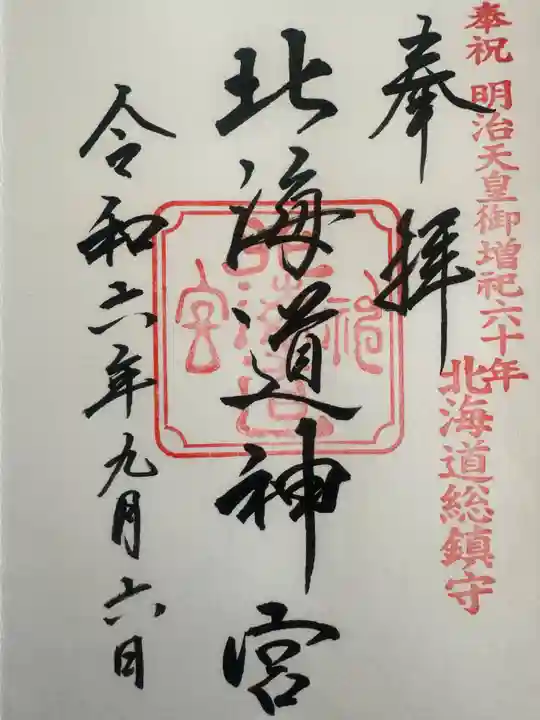 奉祝 明治天皇御増祀六十年
北海道総鎮守
奉拝
北海道神宮
令和六年九月六日
北海道
神宮